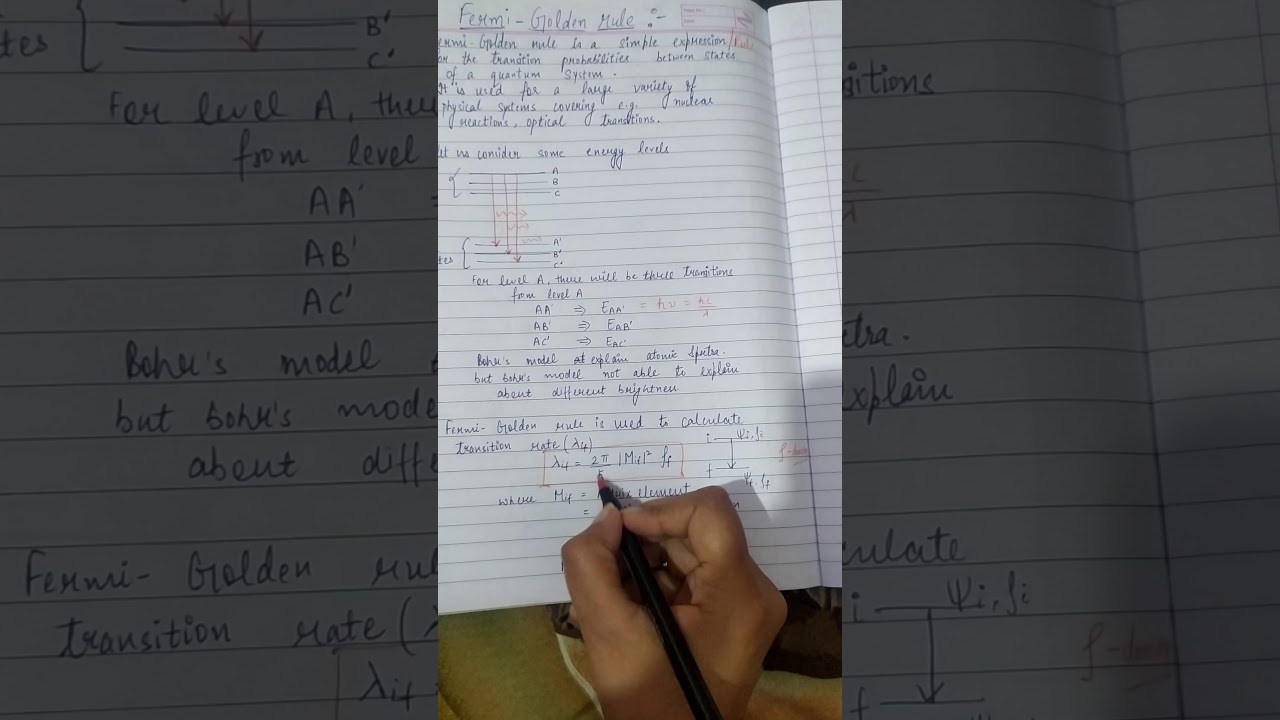 Fermi-Golden rule :-
ermi-Golden rule is a simple expression/rule
the transition probabilities between states
of a quantum system.
It is used for a large variety of
physical systems covering e.g. nuclear
reactions, optical transitions.
us consider some energy levels
A
B
C
A'
B'
C'
For level A, there will be three transitions
from level A
AA' ⇒ E_AA' = hν = hc/λ
AB' ⇒ E_AB'
AC' ⇒ E_AC'
Bohr's model explain atomic spectra.
but bohr's model not able to explain
about different brightness
Fermi-Golden rule is used to calculate
transition rate (λif)
λif = 2π/ħ |Mif|² ρf
i ψi, ρi
f ψf, ρf
where Mif = element
=